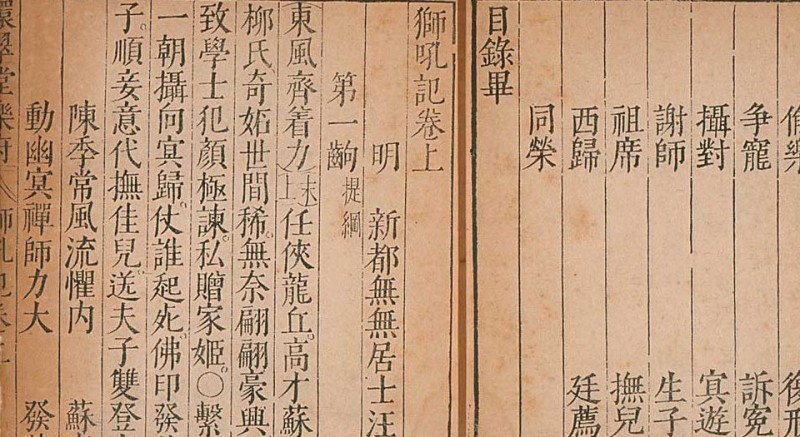 争寵 訴寃
攝對 冥遊
謝師 生子
祖席 撫兒
西歸 廷薦
同榮
目錄畢
獅吼記卷上
明 新都無無居士汪
第一齣 提綱
東風齊着力 末上 任俠龍丘。高才蘇
柳氏奇妬世間稀。無奈翩翩豪興
致學士犯顏極諫。私贈家姬。〇繫
一朝攝向冥歸。仗誰起死。佛印發
子。順妾意代撫佳兒。送夫子雙登
陳季常風流懼内 蘇
動幽冥禪師力大 發
翠堂樂府